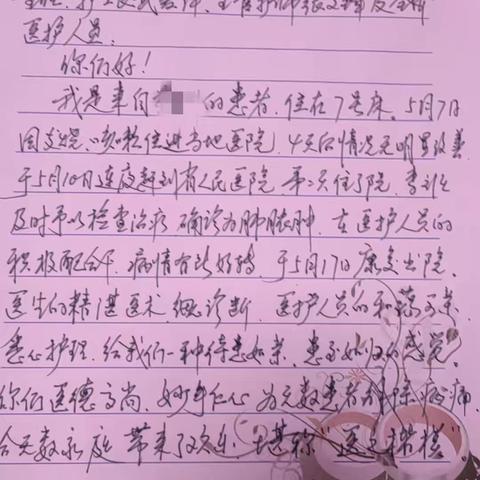 主任、护士长 主管护师张文 及全体
医护人员:
你们好!
我是来自 的患者,住在7号床,5月7日
因发烧、咳嗽住进当地医院,4天后情况无明显改善
于5月10日连夜赶到省人民医院,第二天住了院,李主任
及时予以检查治疗 确诊为肺脓肿,在医护人员的
积极配合下,病情有所好转,于5月17日康复出院。
医生的精湛医术、细心诊断,医护人员的和蔼可亲、
悉心护理,给我们一种待患如亲、患至如归的感觉。
你们医德高尚、妙手仁心 为无数患者 除病痛,
给无数家庭 带来了欢乐,堪称"医之楷模"。